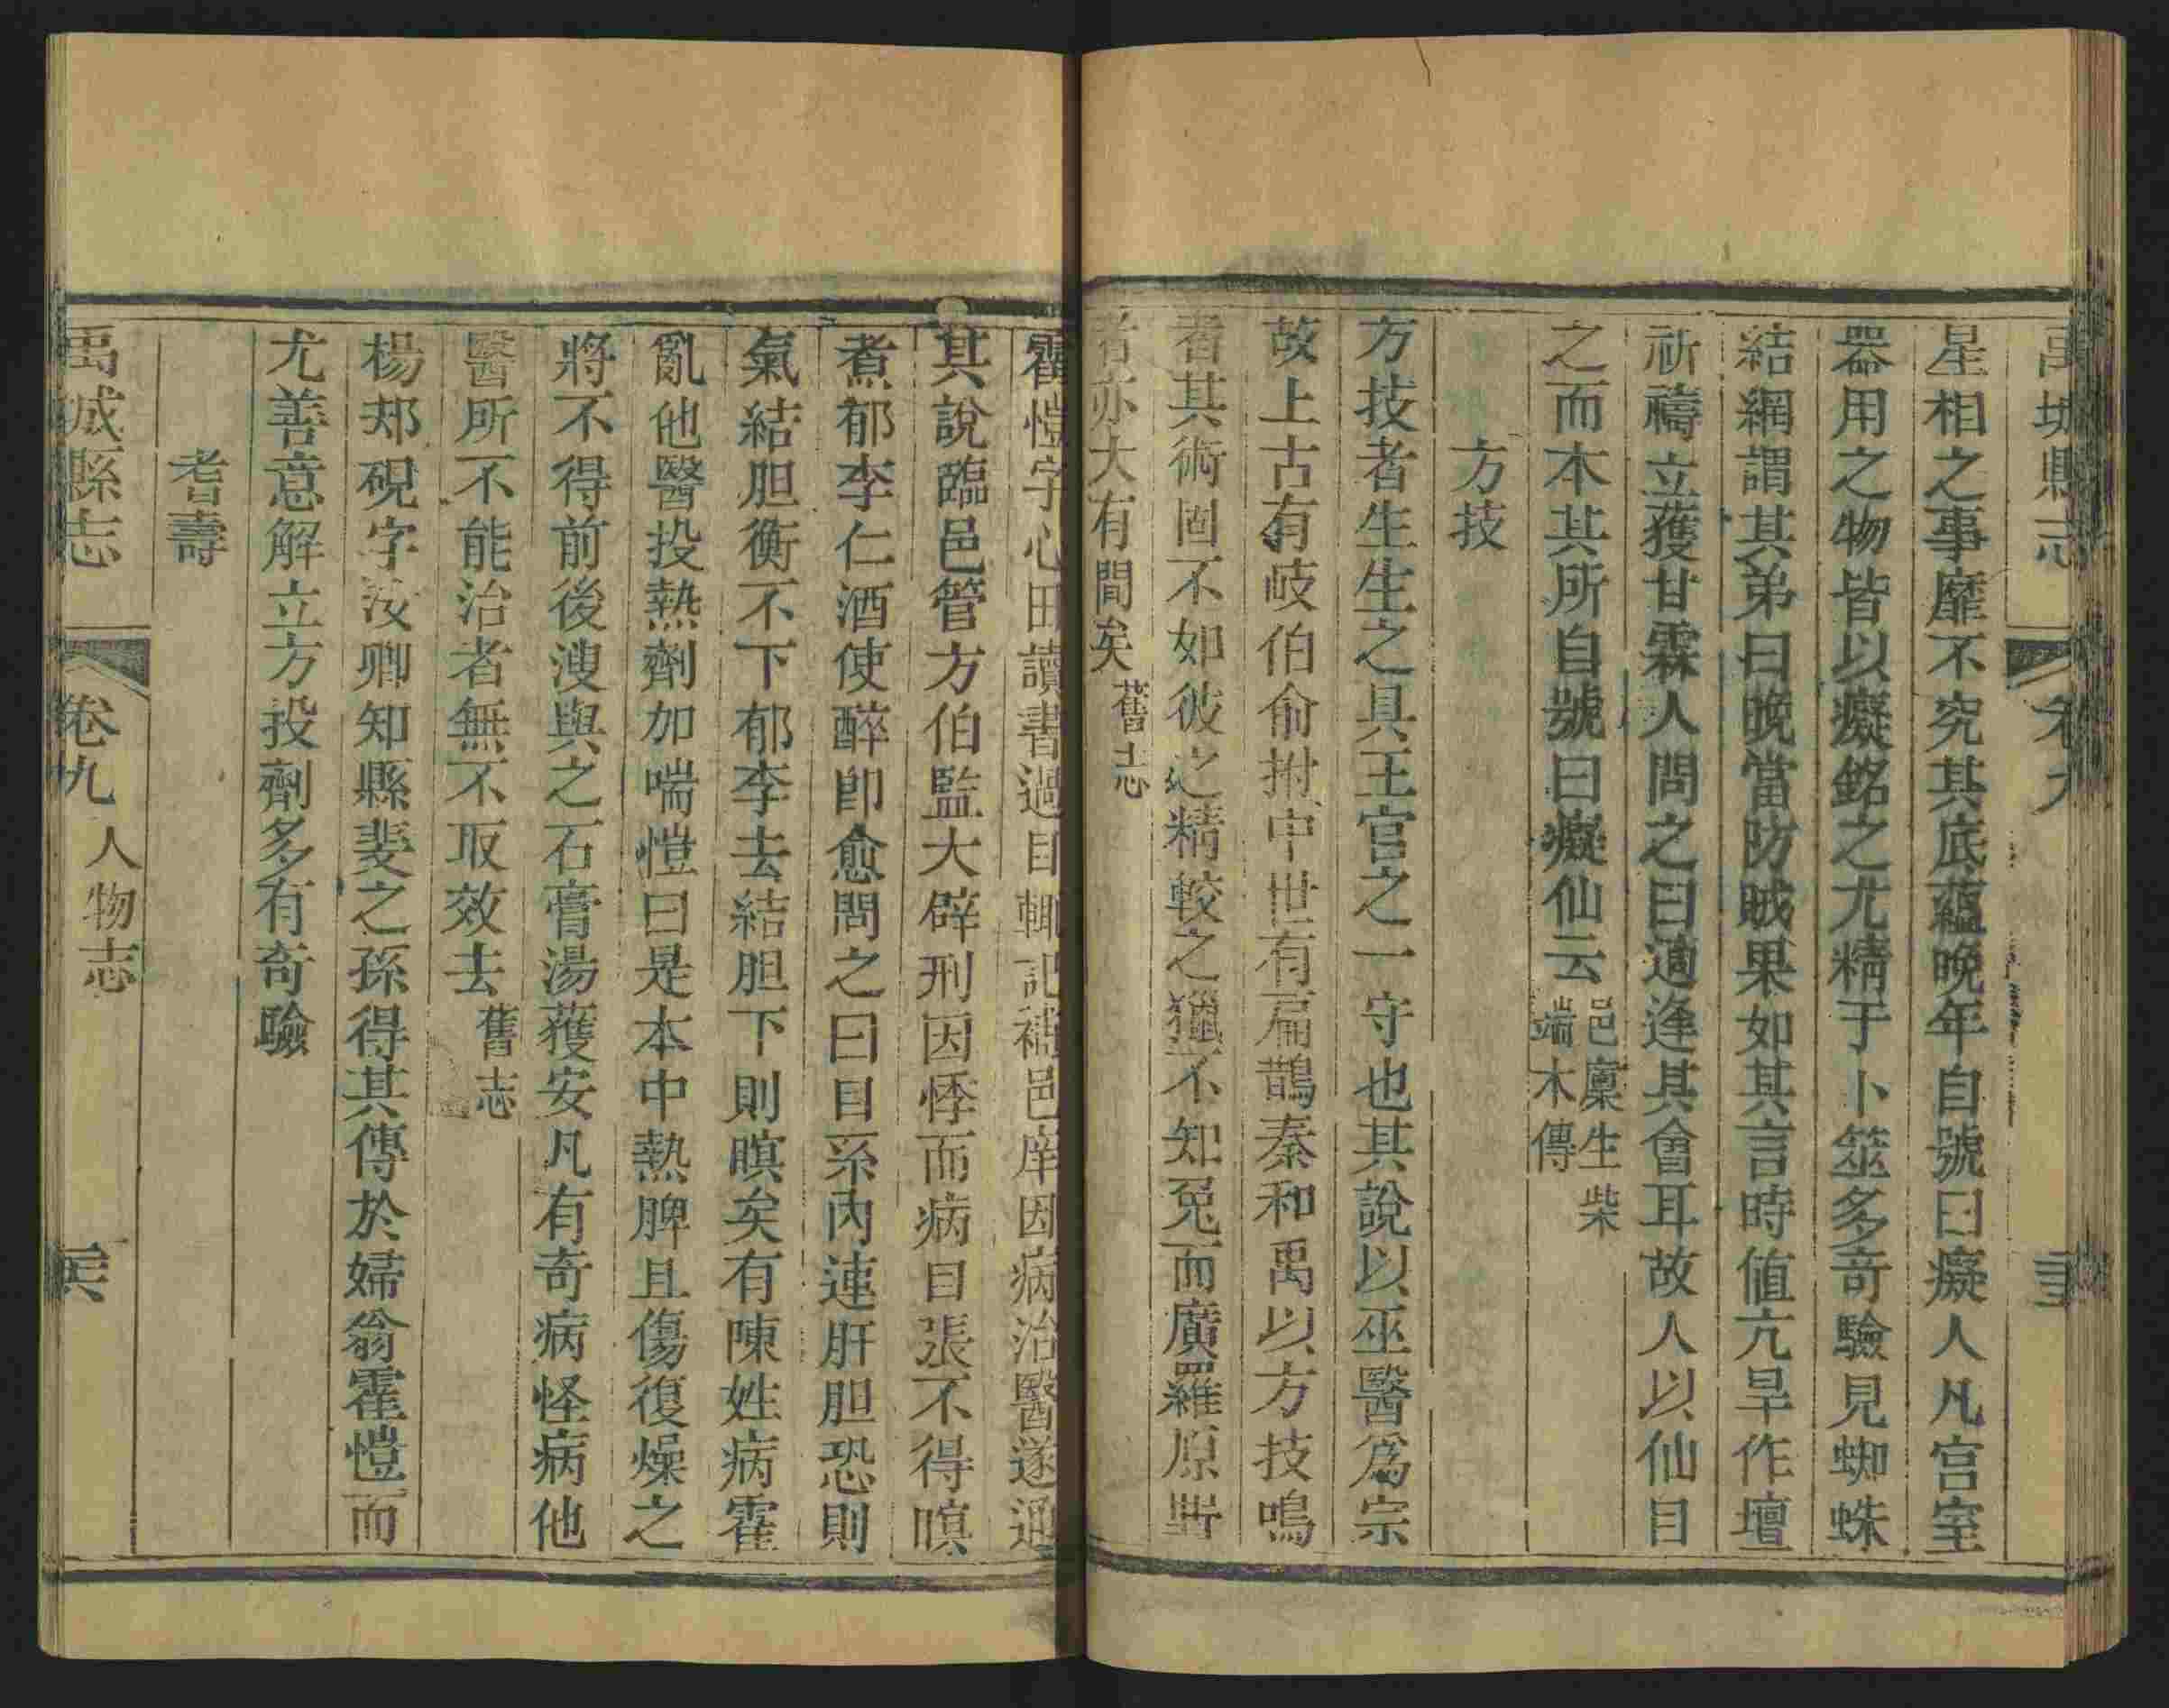 禹城縣志 卷九
星相之事靡不究其底蘊晚年自號曰癡人凡宫室
器用之物皆以癡銘之尤精于卜筮多奇驗見蜘蛛
結網謂其弟曰晚當防賊果如其言時值亢旱作壇
祈禱立獲甘霖人問之曰適逢其會耳故人以仙目
之而本其所自號曰癡仙云邑廩生柴
端木傳
方技
方技者生生之具王官之一守也其說以巫醫爲宗
故上古有岐伯俞拊中世有扁鵲秦和禹以方技鳴
者其術固不如彼之精較之獵不知兔而廣羅原野
者亦大有間矣舊志
霍愷字心田讀書過目輒記補邑庠因病治醫遂通
其說臨邑管方伯監大辟刑因悸而病目張不得瞑
煮郁李仁酒使醉卽愈問之曰目系內連肝胆恐則
氣結胆衡不下郁李去結胆下則瞑矣有陳姓病霍
亂他醫投熱劑加喘愷曰是本中熱脾且傷復燥之
將不得前後溲與之石膏湯獲安凡有奇病怪病他
醫所不能治者無不取效去舊志
楊郟硯字汝卿知縣斐之孫得其傳於婦翁霍愷而
尤善意解立方投劑多有奇驗
耆壽
禹城縣志 卷九 人物志